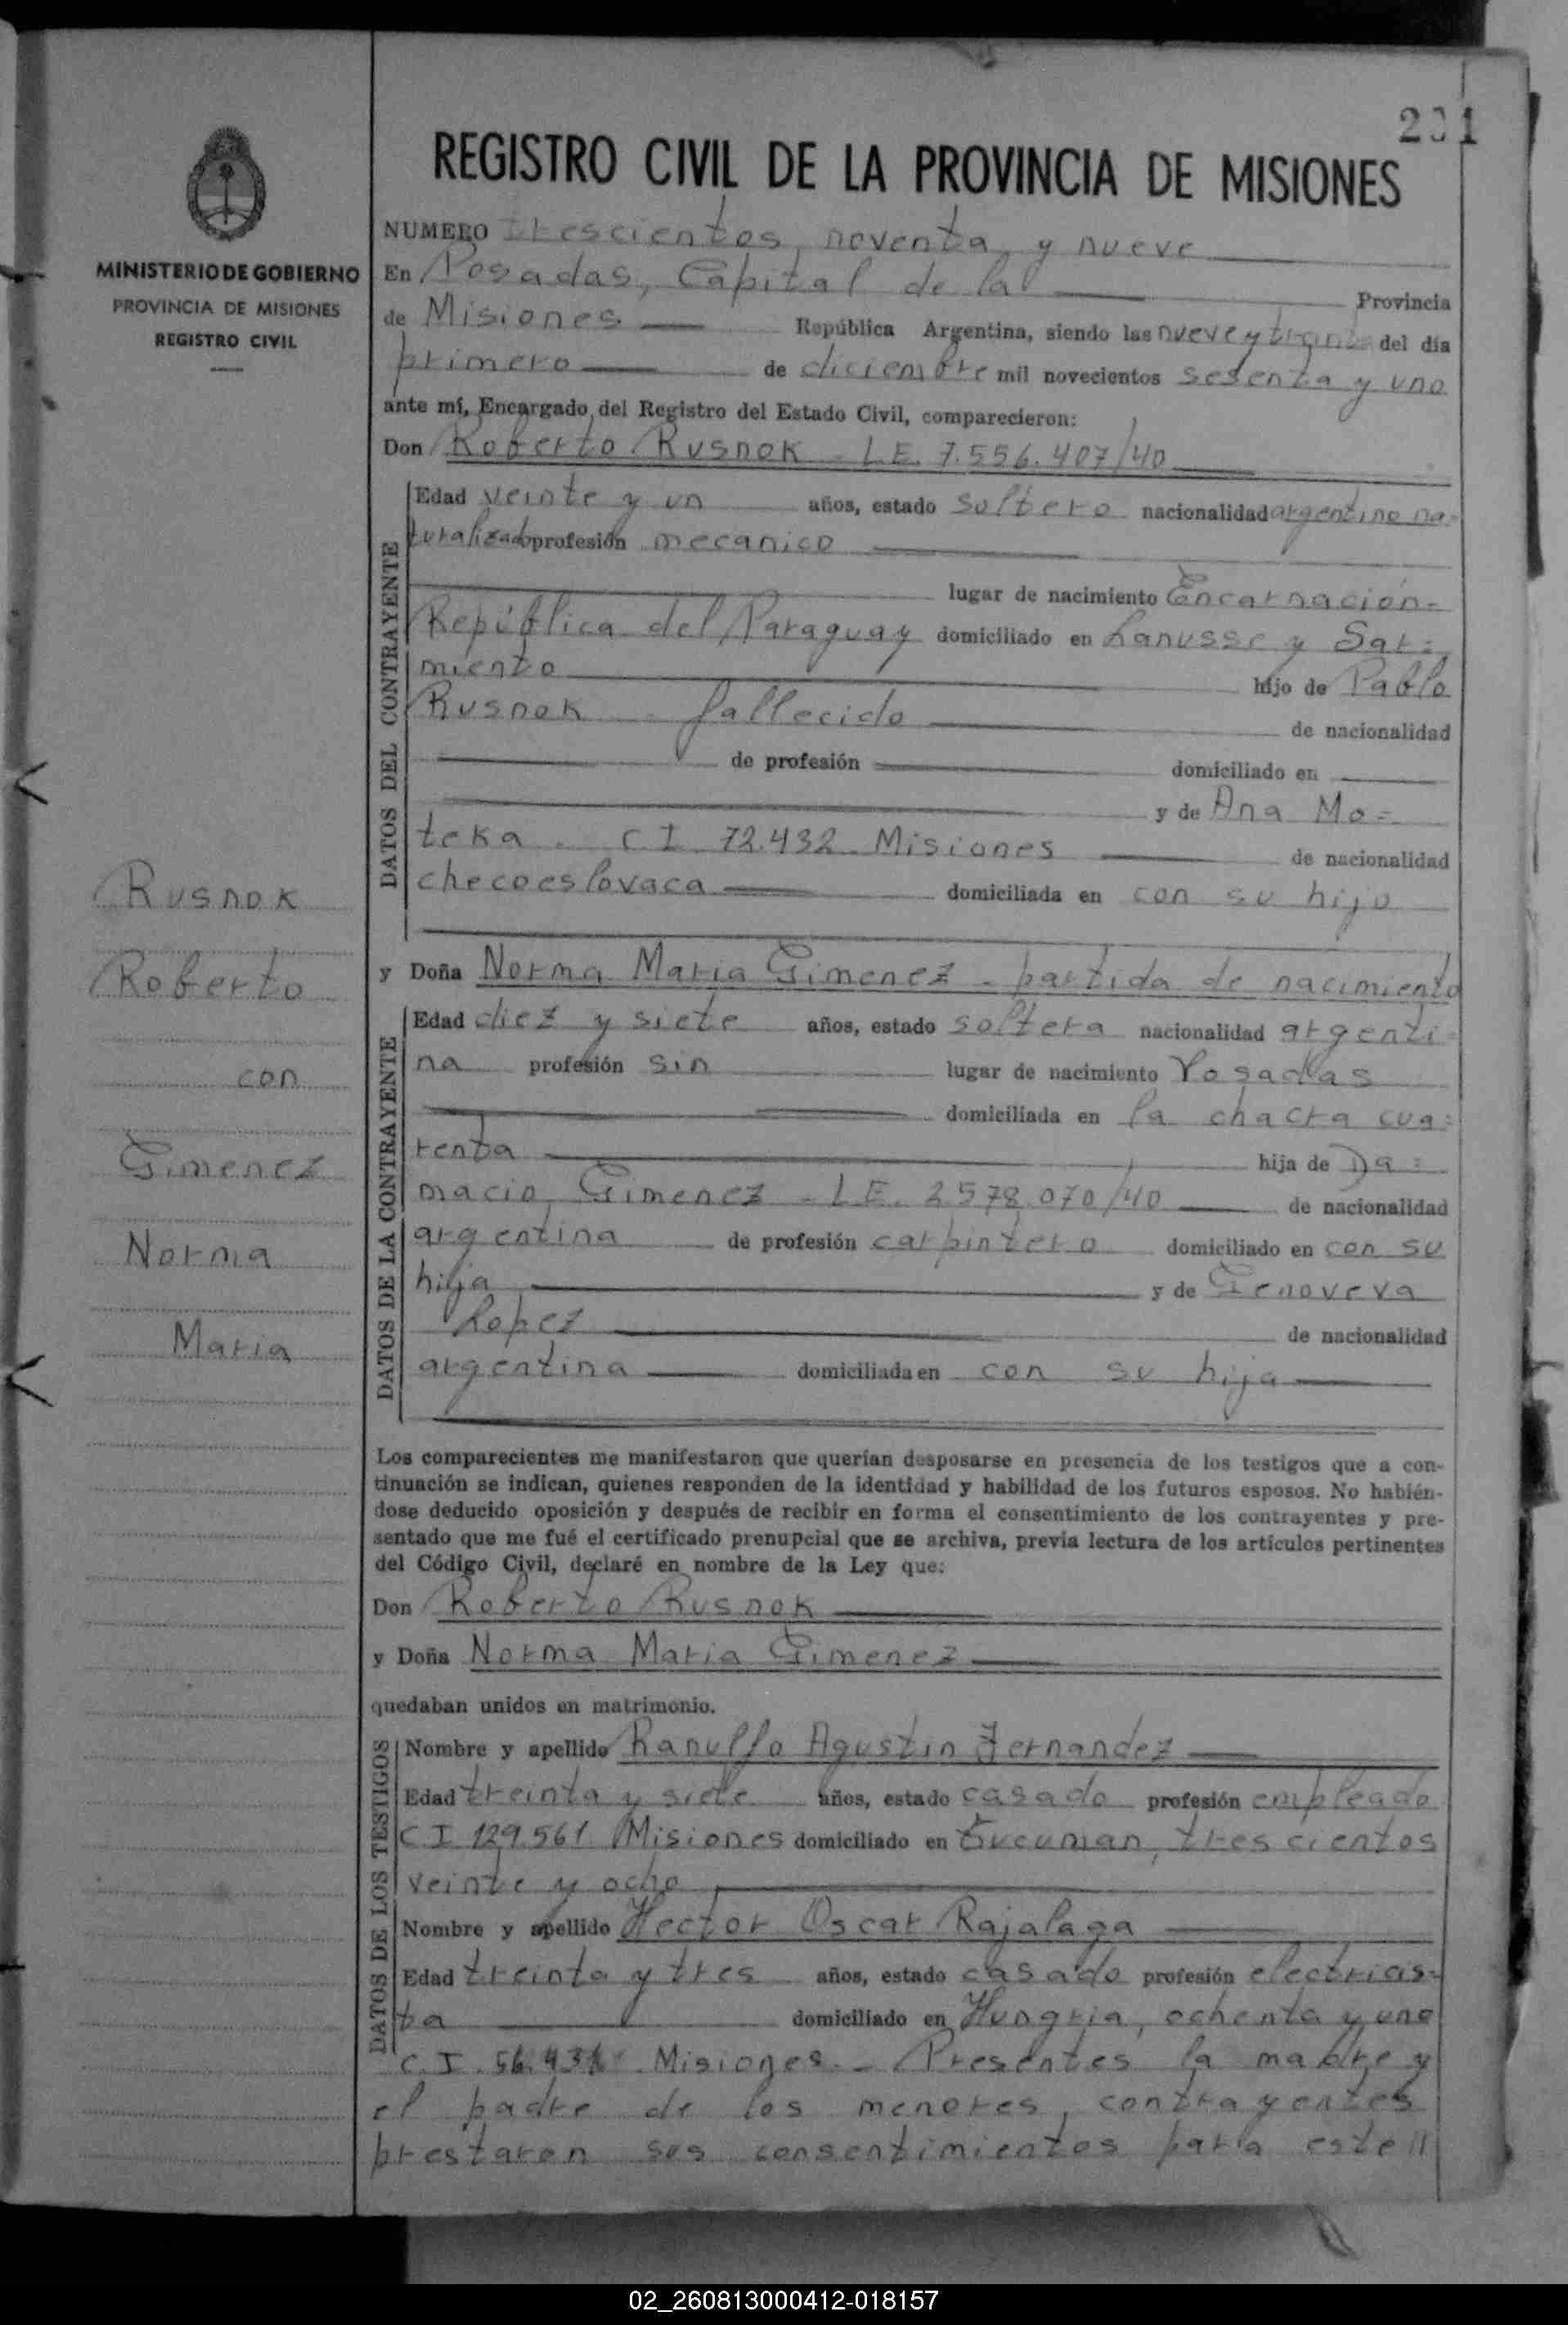 231
REGISTRO CIVIL DE LA PROVINCIA DE MISIONES
MINISTERIO DE GOBIERNO
PROVINCIA DE MISIONES
REGISTRO CIVIL
Rusnok
Roberto
con
Gimenez
Norma
Maria
NUMERO trescientos noventa y nueve
En Posadas, Capital de la Provincia
de Misiones República Argentina, siendo las nueve y treinta del día
primero de diciembre mil novecientos sesenta y uno
ante mí, Encargado del Registro del Estado Civil, comparecieron:
Don Roberto Rusnok - L.E. 7.556.407/40
DATOS DEL CONTRAYENTE
Edad veinte y un años, estado soltero nacionalidad argentino na=
turalizado profesión mecanico
lugar de nacimiento Encarnación-
República del Paraguay domiciliado en Lanusse y Sar=
miento hijo de Pablo
Rusnok - fallecido de nacionalidad
de profesión domiciliado en
y de Ana Mo=
teka - C I 72.432 - Misiones de nacionalidad
checoeslovaca domiciliada en con su hijo
y Doña Norma Maria Gimenez - partida de nacimiento
DATOS DE LA CONTRAYENTE
Edad diez y siete años, estado soltera nacionalidad argenti=
na profesión sin lugar de nacimiento Posadas
domiciliada en la chacra cua=
renta hija de Da=
macio Gimenez - L E. 2.578.070/40 de nacionalidad
argentina de profesión carpintero domiciliado en con su
hija y de Genoveva
Lopez de nacionalidad
argentina domiciliada en con su hija
Los comparecientes me manifestaron que querían desposarse en presencia de los testigos que a con-
tinuación se indican, quienes responden de la identidad y habilidad de los futuros esposos. No habién-
dose deducido oposición y después de recibir en forma el consentimiento de los contrayentes y pre-
sentado que me fué el certificado prenupcial que se archiva, previa lectura de los artículos pertinentes
del Código Civil, declaré en nombre de la Ley que:
Don Roberto Rusnok
y Doña Norma Maria Gimenez
quedaban unidos en matrimonio.
DATOS DE LOS TESTIGOS
Nombre y apellido Ranulfo Agustin Fernandez
Edad treinta y siete años, estado casado profesión empleado
C I 129.561 Misiones domiciliado en Tucuman, trescientos
veinte y ocho
Nombre y apellido Hector Oscar Rajalaga
Edad treinta y tres años, estado casado profesión electricis=
ta domiciliado en Hungria, ochenta y uno
C. I. Misiones - Presentes la madre y
el padre de los menores, contrayentes
prestaron sus consentimientos para este //
02_260813000412-018157